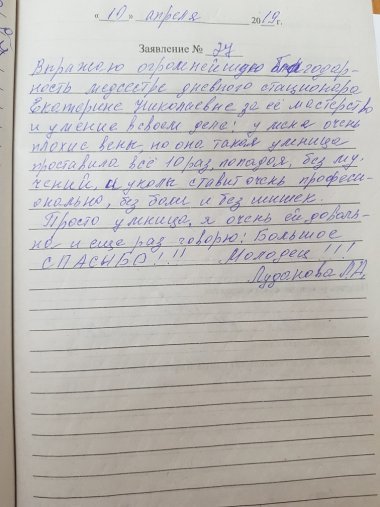 « 19 » апреля 2019 г.
Заявление № 27
Выражаю огромнейшую благодар-
ность медсестре дневного стационара
Екатерине Николаевне за её мастерство
и умение в своем деле! у меня очень
плохие вены, но она такая умница
проставила все 10 раз попадая, без му-
чений, и уколы ставит очень професи-
онально, без боли и без шишек.
Просто умница, я очень ей доволь-
на и еще раз говорю! Большое
СПАСЫБО!!! Молодец!!!